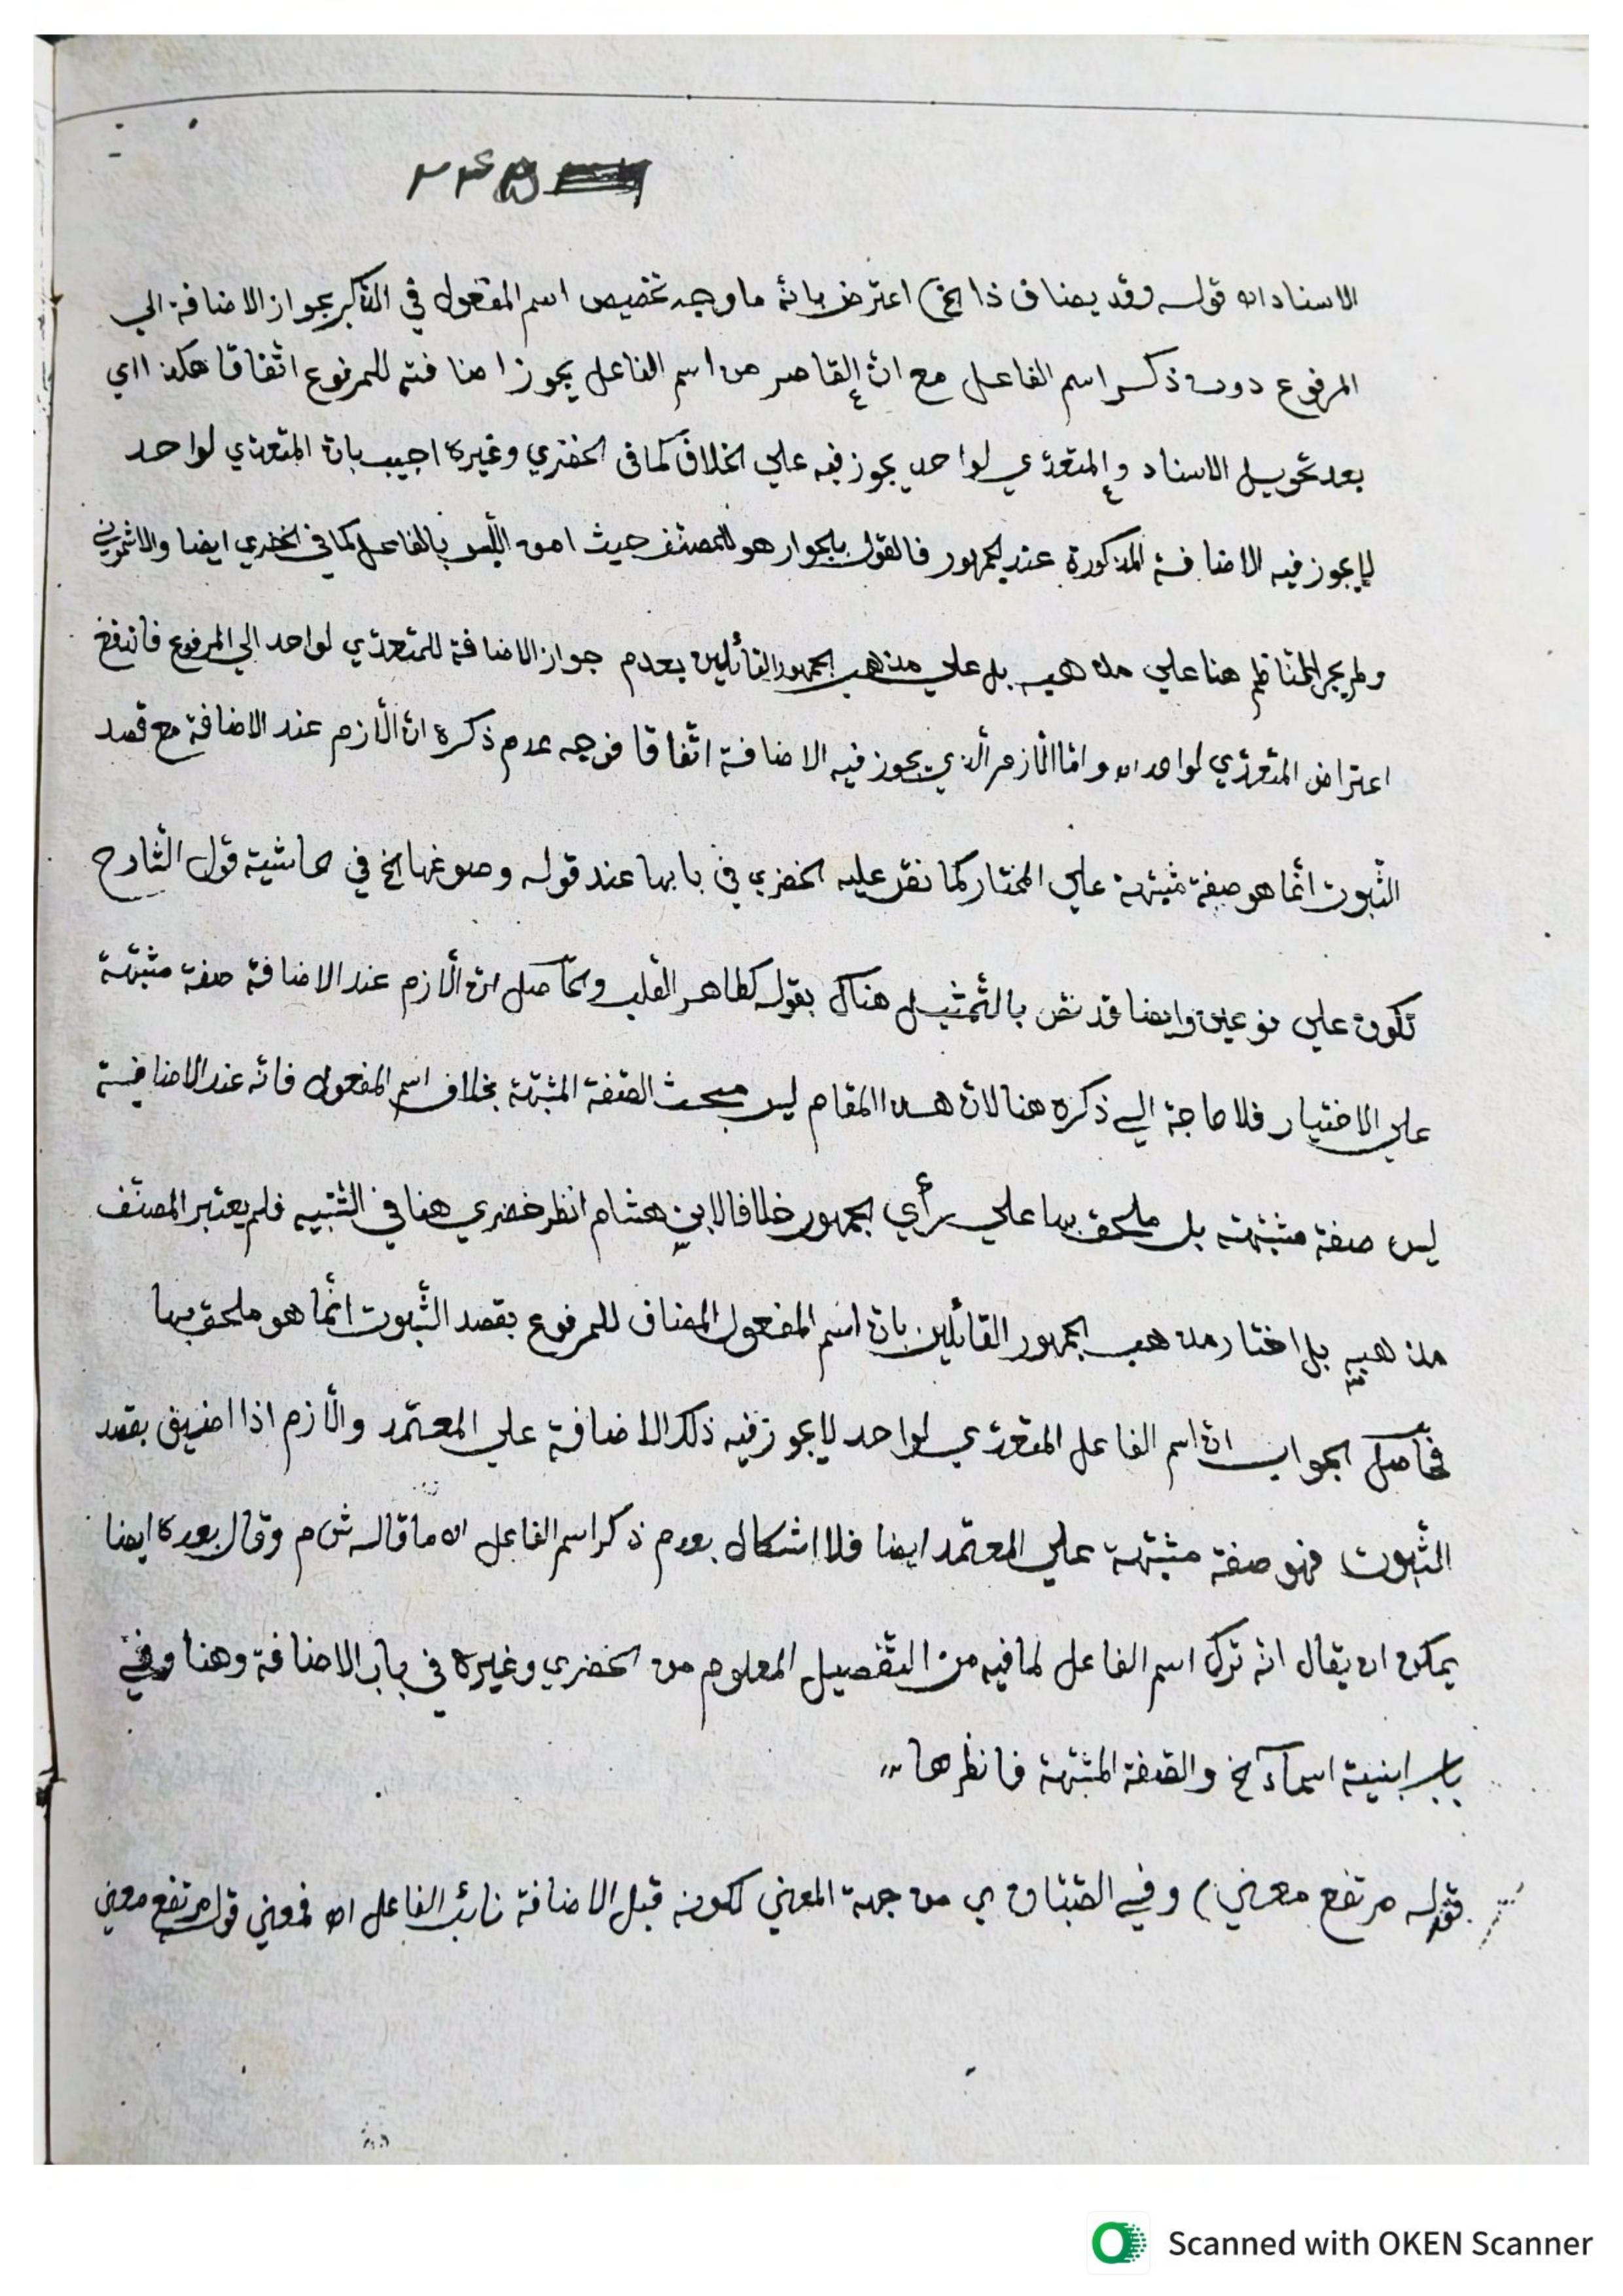 الاسناد اه قوله وقد يضاف ذا الخ) اعترض بانّه ما وجه تخصيص اسم المفعول في الذّكر بجواز الاضافة الي
المرفوع دون ذكر اسم الفاعل مع انّ القاصر من اسم الفاعل يجوز اضافته للمرفوع اتّفاقا هكذا اي
بعد تحويل الاسناد والمتعدّي لواحد يجوز فيه علي الخلاف كما في الخضري وغيره اجيب بانّ المتعدّي لواحد
لا يجوز فيه الاضافة المذكورة عند الجمهور فالقول بالجواز هو للمصنّف حيث امن اللّبس بالفاعل كما في الخضري ايضا والاشموني
ولم يجر النّاظم هنا علي مذهبه بل علي مذهب الجمهور القائلين بعدم جواز الاضافة للمتعدّي لواحد الي المرفوع فاندفع
اعتراض المتعدّي لواحد اه وامّا الّلازم الّذي يجوز فيه الاضافة اتّفاقا فوجه عدم ذكره انّ الّلازم عند الاضافة مع قصد
الثّبوت انّما هو صفة مشبّهة علي المختار كما نصّ عليه الخضري في بابها عند قوله وصوغها الخ في حاشية قول الشّارح
تكون علي نوعين وايضا قد نصّ بالتّمثيل هناك بقوله كطاهر القلب والحاصل انّ الّلازم عند الاضافة صفة مشبّهة
علي الاختيار فلا حاجة الي ذكره هنا لانّ هذا المقام ليس مبحث الصّفة المشبّهة بخلاف اسم المفعول فانّه عند الاضافة
ليس صفة مشبّهة بل ملحق بها علي رأي الجمهور خلافا لابن هشام انظر خضري هنا في التّنبيه فلم يعتبر المصنّف
مذهبه بل اختار مذهب الجمهور القائلين بانّ اسم المفعول المضاف للمرفوع بقصد الثّبوت انّما هو ملحق بها
فحاصل الجواب انّ اسم الفاعل المتعدّي لواحد لا يجوز فيه ذلك الاضافة علي المعتمد والّلازم اذا اضيف بقصد
الثّبوت فهو صفة مشبّهة علي المعتمد ايضا فلا اشكال بعدم ذكر اسم الفاعل اه ما قاله ش م وقال بعده ايضا
يمكن ان يقال انّه ترك اسم الفاعل لما فيه من التّفصيل المعلوم من الخضري وغيره في باب الاضافة وهنا وفي
باب ابنية اسمآء الخ والصّفة المشبّهة فانظرها
قوله مرتفع معني) وفي الصّبّان ي من جهة المعني لكونه قبل الاضافة نائب الفاعل اه فمعني قوله مرتفع معني
Scanned with OKEN Scanner